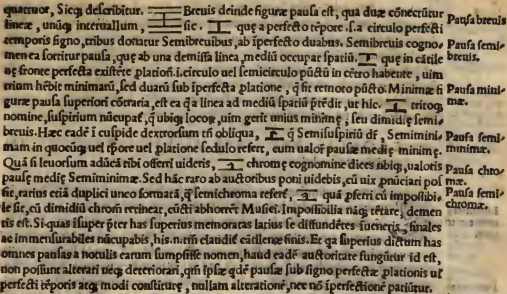 quattuor, Sicq; describitur. Breuis deinde figuræ pausa est, quâ duæ cõnectũtur
lineæ, unũq; interuallum, sic. quę a perfecto tẽpore .s.a circulo perfecti
temporis signo, tribus donatur Semibreuibus, ab ĩperfecto duabus. Semibreuis cogno
men ea sortitur pausa, quę ab una demissa linea, mediũ occupat spatiũ.
fronte perfecta existẽte platiõn.i.circulo uel semicirculo pũctũ in cẽtro habente, uim
trium hẽbit minimarũ, sed duarũ sub ĩperfecta platione, sit remoto pũcto. Minimæ fi
guræ pausa superiori cõtraria, est ea q̃ linea ad mediũ spatiũ p̃tẽdit, ut hic. tritoq;
nomine, suspirium nũcupaf, ubiq; locor, uim gerit unius minimę, seu dimidię semi
breuis. Hæc eadẽ i cuspide dextrorsum tñ obliqua, q̃ Semisuspiriũ df, Semimini
mam in quocũq; uel tpore uel platione sedulo refert, cum ualor pausæ medię minimę.
Quã si leuorsum adũcã tibi offerri uideris, chromę cognomine dices
pausę medię Semiminimæ. Sed hãc raro ab auctoribus poni uidebis, cũ uix pnũciari pos
sit, rarius etiã duplici unco formatã, q̃ semichroma referẽ, quã pferri cũ impossibi
le sit, cũ dimidiũ chromę retineat, cũcti abhorrẽt Musici. Impossibilia nãq; tẽtare, demen
tis est. Si quas
ac immensurabiles nũcupabis, his finis. Et qa superius dictum has
omnes pausas a notulis earum sumpsisse nomen, haud eadẽ auctoritate fungũtur id est,
non possunt alterari uẽq; deteriorari, pausæ sub signo perfectæ plationis uf
perfecti tẽporis atq; modi constitutę, nullam alterationẽ, nec nõ ĩperfectionẽ patiũtur.
Pausa breuis
Pausa semi
breuis.
Pausa mini
mæ.
Pausa semi
minimæ.
Pausa chro
mæ.
Pausa semi
chromæ.